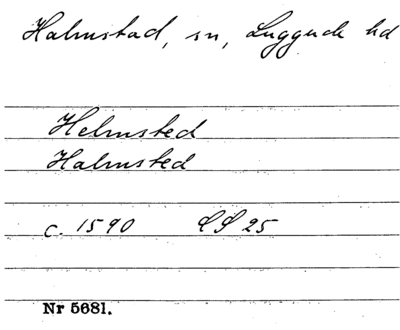 Halmstad, sn, Luggude hd
Helmsted
Halmsted
c. 1590 LS 25
Nr 5681.